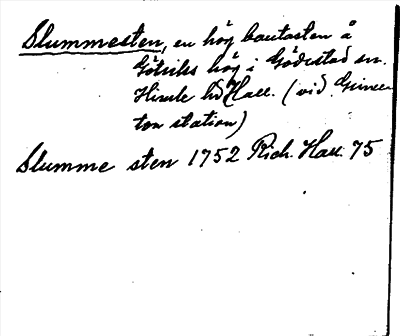 Slummesten, en hög bautasten å
Götriks hög i Gödestad sn.
Himle hd Hall. (vid Grimeton
station)
Slumme sten 1752 Rich. Hall. 75